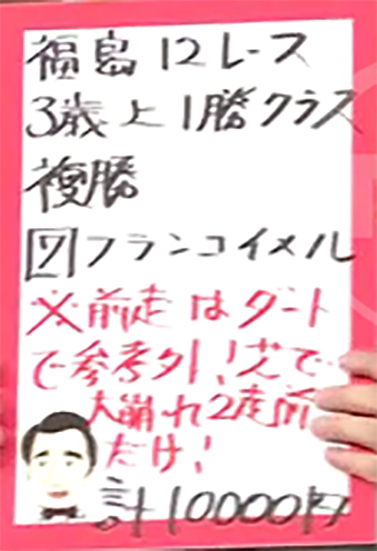 福島12レース
3歳上1勝クラス
複勝
7フランコイメル
※前走はダート
で参考外!芝で
大崩れ2走前
だけ!
計10000円